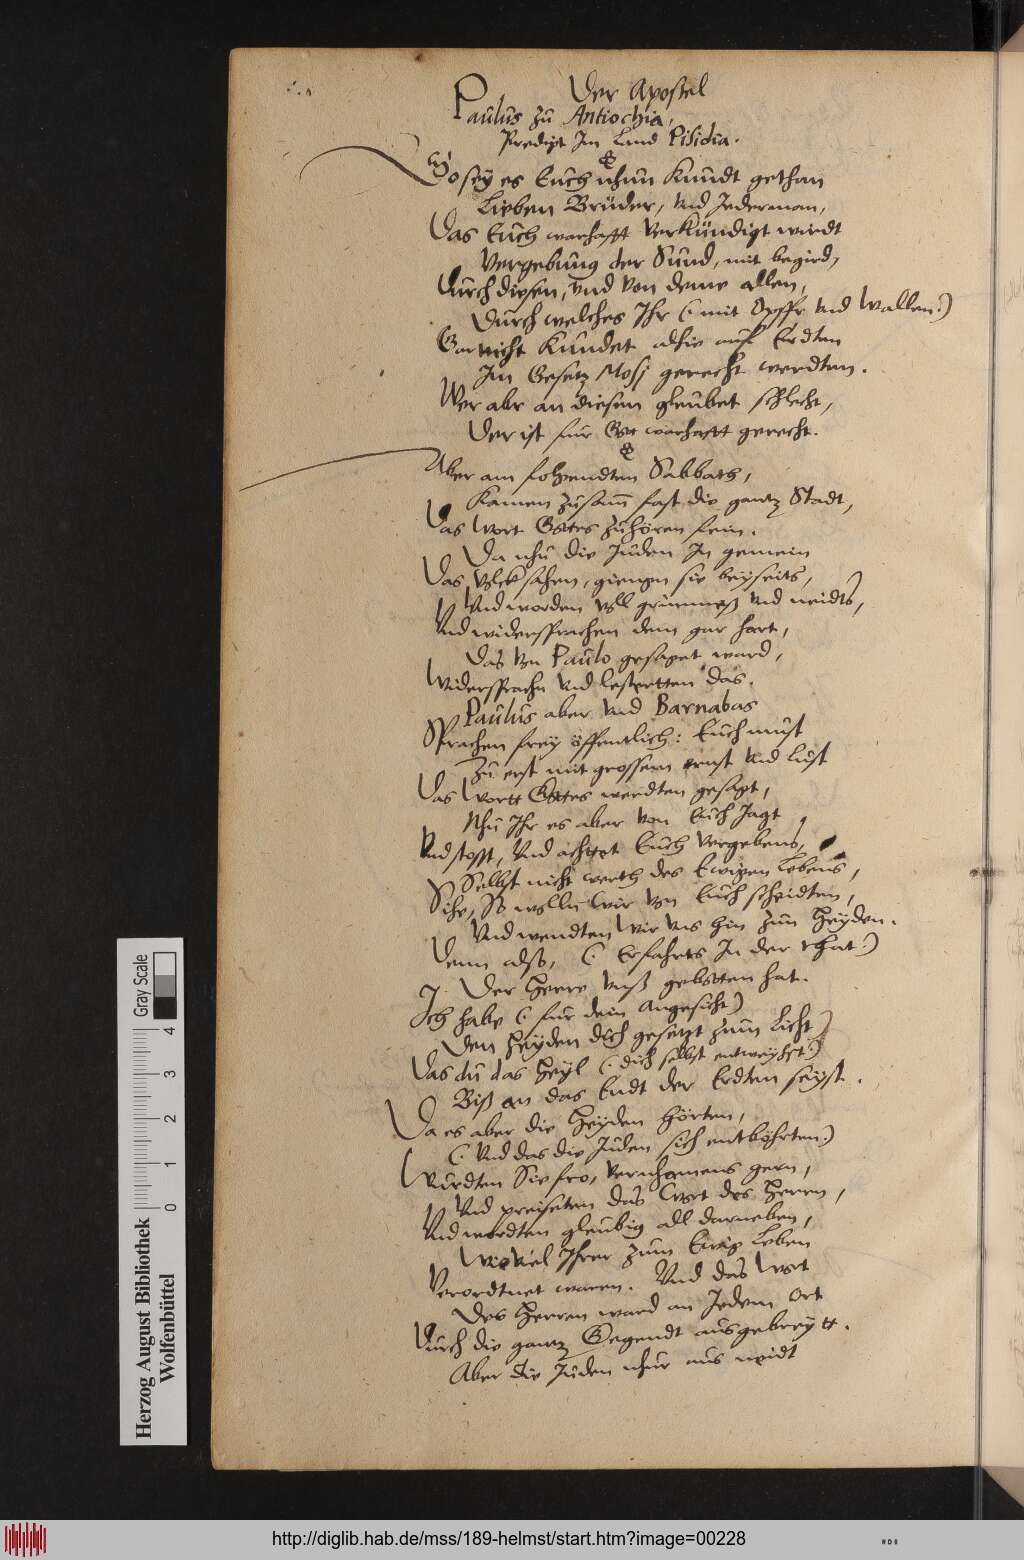 Der Apostel
Paulus zu Antiochia,
Predigt Im Land Pisidia.
So sey es Euch nhun kundt gethan
Lieben Brüder, und Jederman,
Das Euch warhafft verkündigt wirdt
Vergebung der Sund, mit begird,
Durch diesen, und von deme allen,
Durch welches Ihr (: mit Opffr und Wallen:)
Gar nicht kundet alhie auf Erdten
Im Gesetz Mosj gerecht werdten.
Wer abr an diesen glaubet schlecht,
Der ist fur Gott warhafft gerecht.
Aber am folgendten Sabbath,
Kamen zusamm fast die gantz Stadt,
Das Wort Gottes zuhören fein.
Da nhu die Juden In gemein
Das Volck sahen, giengen sie beyseits,
Und worden voll grimmeß und neidts,
Und widersprachen dem gar hart,
Das von Paulo gesaget ward,
Widersprachn und lestertten das.
Paulus aber und Barnabas
Sprachen frey öffentlich: Euch must
Zu erst mit grossem ernst und lust
Das Wortt Gottes werdten gesagt,
Nhu Ihr es aber von Euch Jagt,
Und stosst, Und achttet Euch vergebens,
Selbst nicht werth des Ewigen Lebens,
Sihe, So wolln wir von Euch scheidten,
Und wendten Wir uns hin zun Heyden.
Denn also, (: Erfahrts In der that:)
Der Herre unß gebotten hat.
Ich habe (: fur dein Angesicht)
Den Heyden dich gesetzt zum Licht
Das du das Heyl (: dich selbst entweyhst:)
Biß an das Endt der Erdten seyst.
Da es aber die Heyden hörten,
(: Und das die Juden sich entböhrten:)
Wurdten Sie fro, vernhamens gern,
Und preiseten das Wort des Herrn,
Und wordten gleubig all darneben,
Wieviel Ihrer zum Ewig Leben
Verordtnet waren. Und das Wort
Des Herren ward an Jedem Ort
Durch die gantz Gegendt ausgebreytt.
Aber die Juden nhur aus neidt
Gray Scale
0 1 2 3 4
Herzog August Bibliothek
Wolfenbüttel
http://diglib.hab.de/mss/189-helmst/start.htm?image=00228